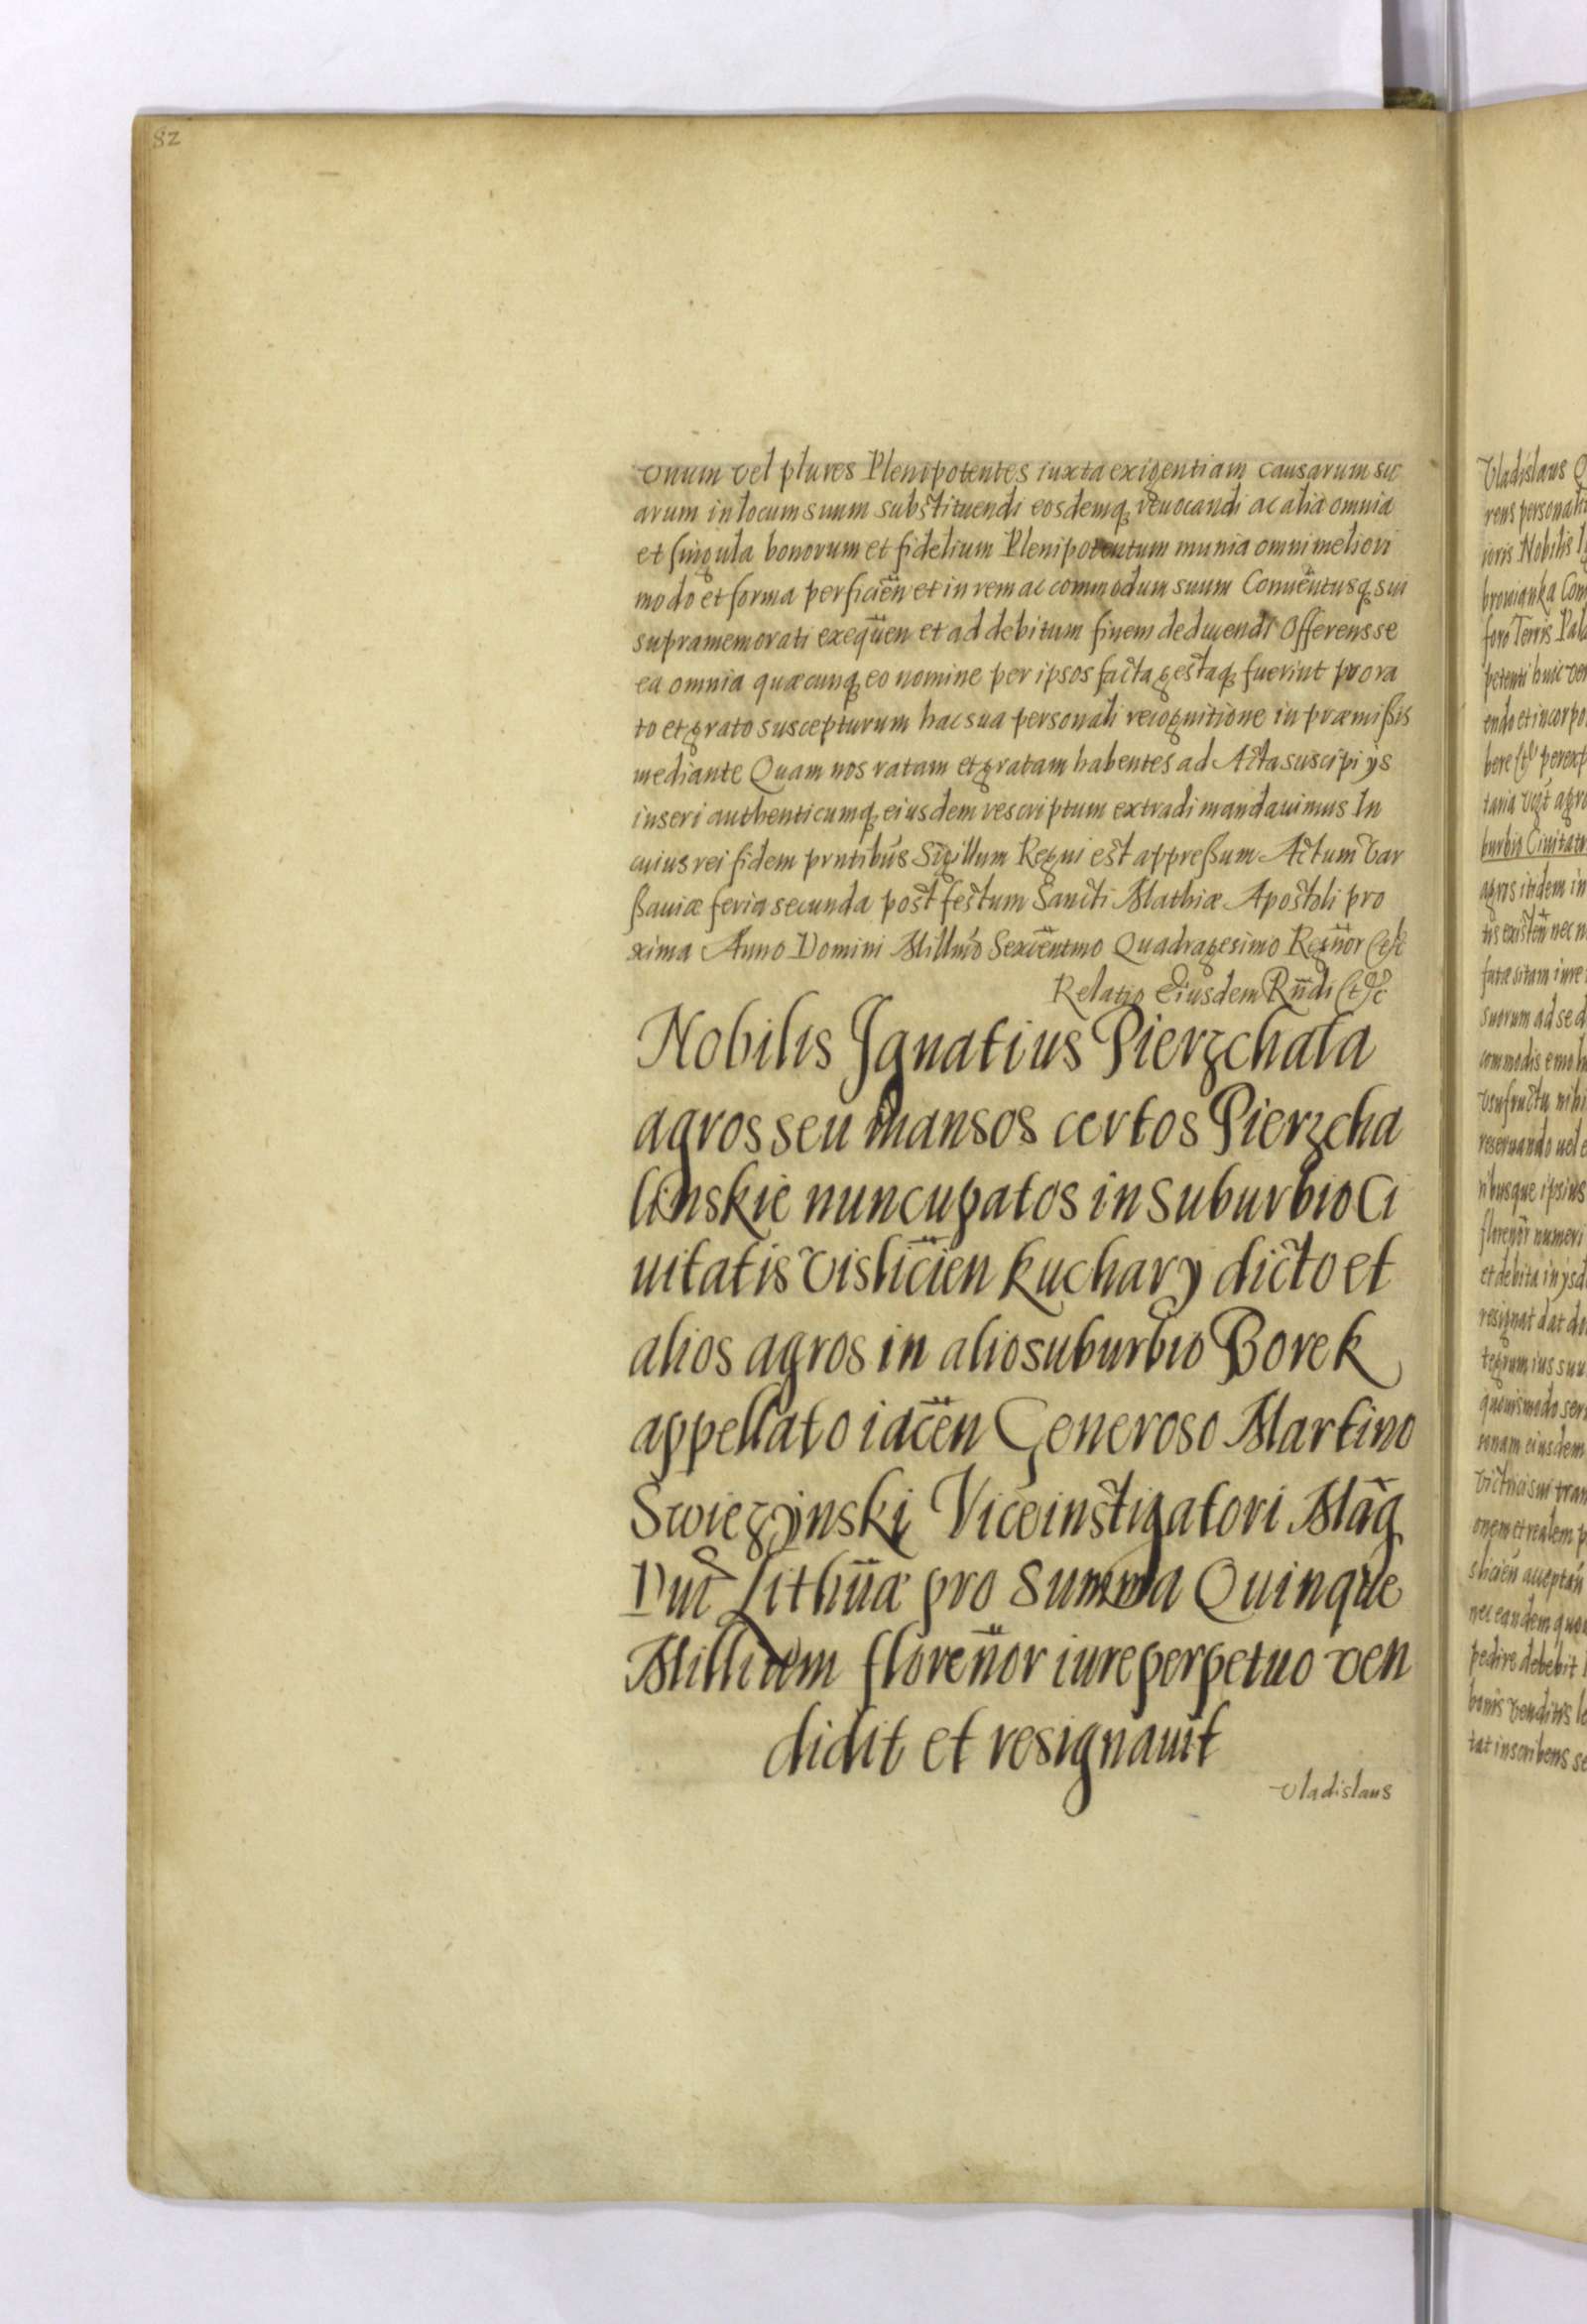 82
vnum vel plures Plenipotentes iuxta exigentiam causarum su
arum in locum suum substituendi eosdemq3 reuocandi ac alia omnia
et singula bonorum et fidelium Plenipotentum munia omni meliori
modo et forma perficien̄ et in rem ac commodum suum Conuentusq3 sui
supramemorati exequen̄ et ad debitum finem deducendi Offerens se
ea omnia quæcunq3 eo nomine per ipsos facta gestaq3 fuerint pro ra
to et grato suscepturum hac sua personali recognitione in præmißis
mediante Quam nos ratam et gratam habentes ad Acta suscipi ijs
inseri authenticumq3 eiusdem rescriptum extradi mandauimus In
cuius rei fidem prntibus Sigillum Regni est appreßum Actum Var
ßauiæ feria secunda post festum Sancti Mathiæ Apostoli pro
xima Anno Domini Millmo Sexcentmo Quadragesimo Regnor̄ &c
Relatio Eiusdem Rn̄di &c
Nobilis Ignatius Pierzchała
agros seu mansos certos Pierzcha
linskie nuncupatos in suburbio Ci
uitatis Vislicien̄ Kuchary dicto et
alios agros in alio suburbio Borek
appellato iacen̄ Generoso Martino
Swiezÿnski Viceinstigatori Mag
Duc Lithuā pro Summa Quinque
Millium floreñor iure perpetuo ven
didit et resignauit
Vladislaus
Vladislaus
rens personali
ioris Nobilis
brouianka
foro Terris Pal
petenti huic
endo et incorpo
bere
taria agro
burbio Ciuitatis
agros itidem in
tis existen̄ nec n
fatæ sitam iure
suorum ad se
commodis emolu
vsufructu nihi
reseruando uel
ribusque ipsius
florenor̄ numeri
et debita in ysd
resignat dat do
tegrum ius suu
quouismodo ser
sonam eiusdem
tran
onem et realem p
slicien̄ acceptan̄
nec eandem quo
pedire debebit
bonis venditis
tat inscribens se